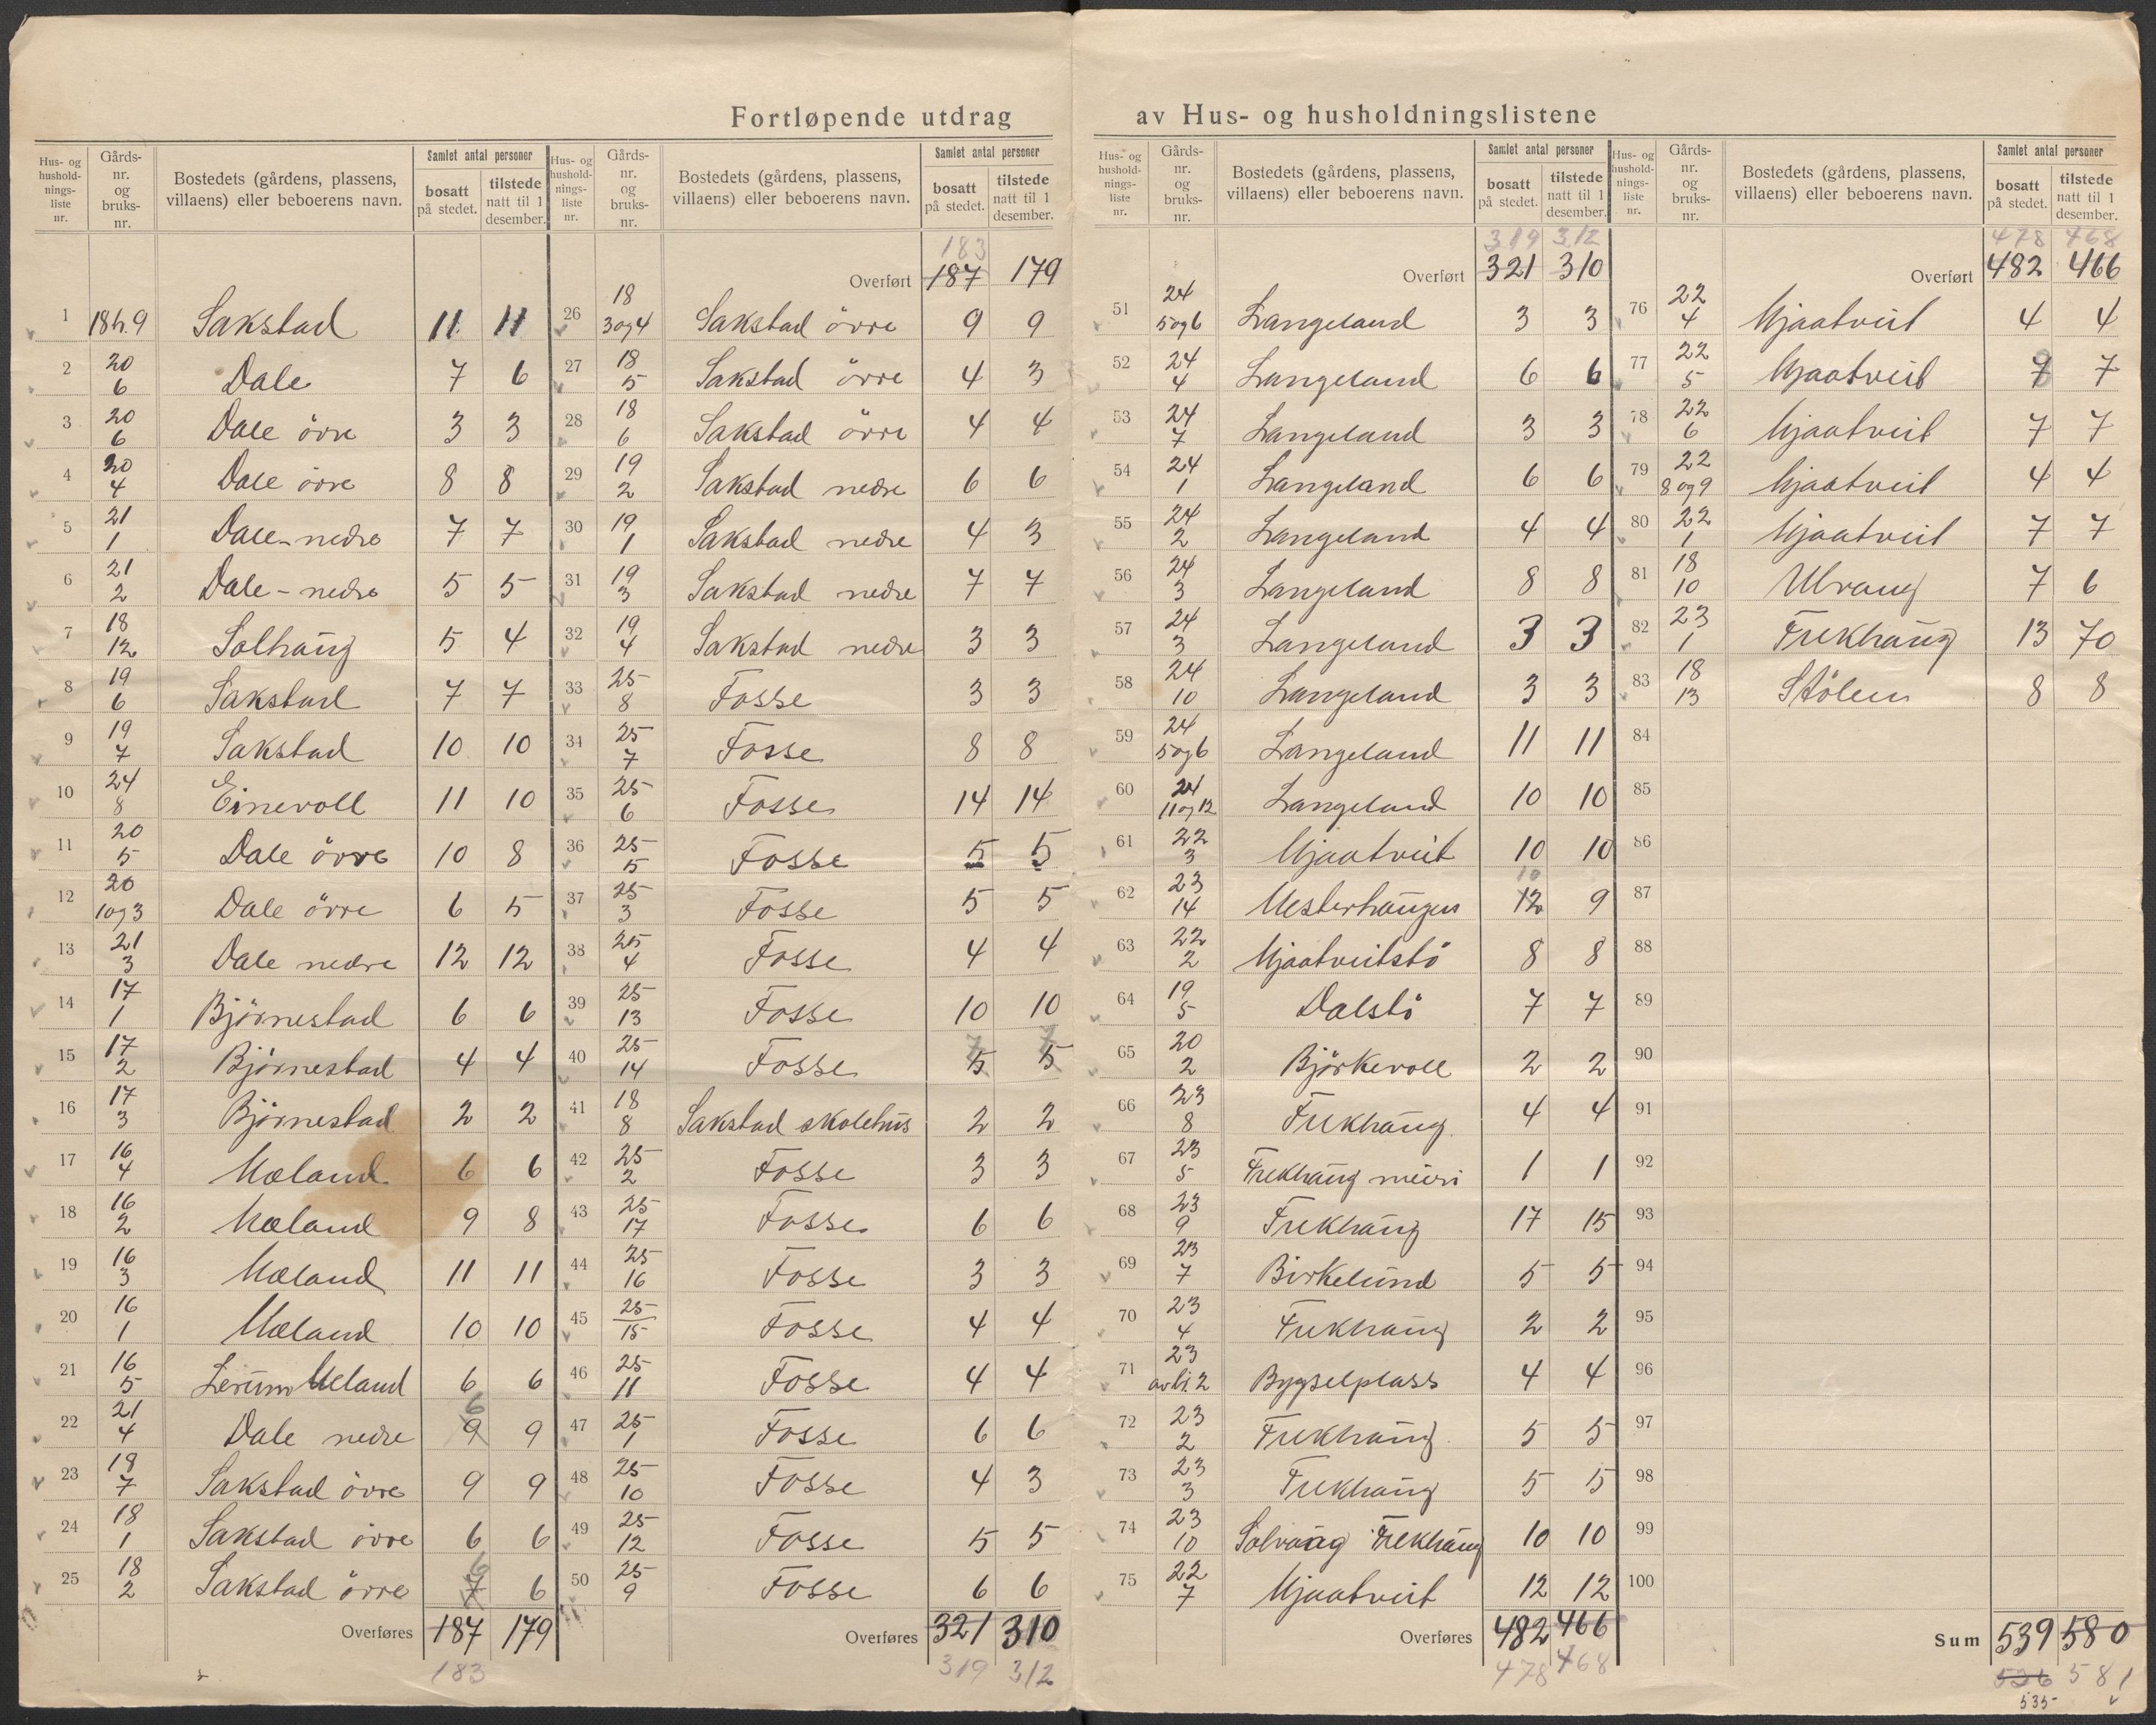 Fortløpende utdrag av Hus- og husholdningslistene
Hus- og husholdnings-liste nr. | Gårds-nr. og bruks-nr. | Bostedets (gårdens, plassens, villaens) eller beboerens navn. | Samlet antal personer | bosatt på stedet. | tilstede natt til 1 desember.
1 18 h. 9 Sakstad 11 11
2 20 6 Dale 7 6
3 20 6 Dale övre 3 3
4 20 4 Dale övre 8 8
5 21 1 Dale-nedre 7 7
6 21 2 Dale-nedre 5 5
7 18 12 Solhaug 5 4
8 19 6 Sakstad 7 7
9 19 7 Sakstad 10 10
10 24 8 Einevoll 11 10
11 20 5 Dale övre 10 8
12 20 1og3 Dale övre 6 5
13 21 3 Dale nedre 12 12
14 17 1 Björnestad 6 6
15 17 2 Björnestad 4 4
16 17 3 Björnestad 2 2
17 16 4 Mæland 6 6
18 16 2 Mæland 9 8
19 16 3 Mæland 11 11
20 16 1 Mæland 10 10
21 16 5 Lerum Meland 6 6
22 21 4 Dale nedre 9 6 9
23 18 7 Sakstad övre 9 9
24 18 1 Sakstad övre 6 6
25 18 2 Sakstad övre 7 6 6
Overføres 187 179
183
Hus- og husholdnings-liste nr. | Gårds-nr. og bruks-nr. | Bostedets (gårdens, plassens, villaens) eller beboerens navn. | Samlet antal personer | bosatt på stedet. | tilstede natt til 1 desember.
183
Overført 187 179
26 18 3og4 Sakstad övre 9 9
27 18 5 Sakstad övre 4 3
28 18 6 Sakstad övre 4 4
29 19 2 Sakstad nedre 6 6
30 19 1 Sakstad nedre 4 3
31 19 3 Sakstad nedre 7 7
32 19 4 Sakstad nedre 3 3
33 25 8 Fosse 3 3
34 25 7 Fosse 8 8
35 25 6 Fosse 14 14
36 25 5 Fosse 5 5
37 25 3 Fosse 5 5
38 25 4 Fosse 4 4
39 25 13 Fosse 10 10
40 25 14 Fosse 5 7 5 7
41 18 8 Sakstad skolehus 2 2
42 25 2 Fosse 3 3
43 25 17 Fosse 6 6
44 25 16 Fosse 3 3
45 25 15 Fosse 4 4
46 25 11 Fosse 4 4
47 25 1 Fosse 6 6
48 25 10 Fosse 4 3
49 25 12 Fosse 5 5
50 25 9 Fosse 6 6
Overføres 321 310
319 312
Hus- og husholdnings-liste nr. | Gårds-nr. og bruks-nr. | Bostedets (gårdens, plassens, villaens) eller beboerens navn. | Samlet antal personer | bosatt på stedet. | tilstede natt til 1 desember.
319 312
Overført 321 310
51 24 5og6 Langeland 3 3
52 24 4 Langeland 6 6
53 24 7 Langeland 3 3
54 24 1 Langeland 6 6
55 24 2 Langeland 4 4
56 24 3 Langeland 8 8
57 24 3 Langeland 3 3
58 24 10 Langeland 3 3
59 24 5og6 Langeland 11 11
60 24 11og12 Langeland 10 10
61 22 3 Mjaatveit 10 10
62 23 14 Mesterhaugen 12 10 9
63 22 2 Mjaatveitstö 8 8
64 19 5 Dalstö 7 7
65 20 2 Björkevoll 2 2
66 23 8 Frekhaug 4 4
67 23 5 Frekhaug meieri 1 1
68 23 9 Frekhaug 17 15
69 23 7 Birkelund 5 5
70 23 4 Frekhaug 2 2
71 23 av b. 2 Bygselplass 4 4
72 23 2 Frekhaug 5 5
73 23 3 Frekhaug 5 5
74 23 10 Solvang Frekhaug 10 10
75 22 7 Mjaatveit 12 12
Overføres 482 466
478 468
Hus- og husholdnings-liste nr. | Gårds-nr. og bruks-nr. | Bostedets (gårdens, plassens, villaens) eller beboerens navn. | Samlet antal personer | bosatt på stedet. | tilstede natt til 1 desember.
478 468
Overført 482 466
76 22 4 Mjaatveit 4 4
77 22 5 Mjaatveit 7 8 7
78 22 6 Mjaatveit 7 7
79 22 8og9 Mjaatveit 4 4
80 22 1 Mjaatveit 7 7
81 18 10 Ulvang 7 6
82 23 1 Frekhaug 13 70
83 18 13 Stölen 8 8
84
85
86
87
88
89
90
91
92
93
94
95
96
97
98
99
100
Sum 539 580
536 581
535